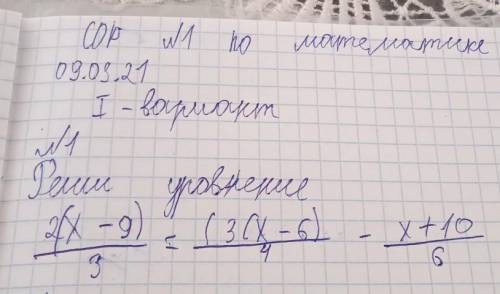 СОР №1 по математике
09.09.21
I - вариант
№1
Реши уровнение
2(x - 9)/3 = (3(x - 6)/4 - x + 10/6